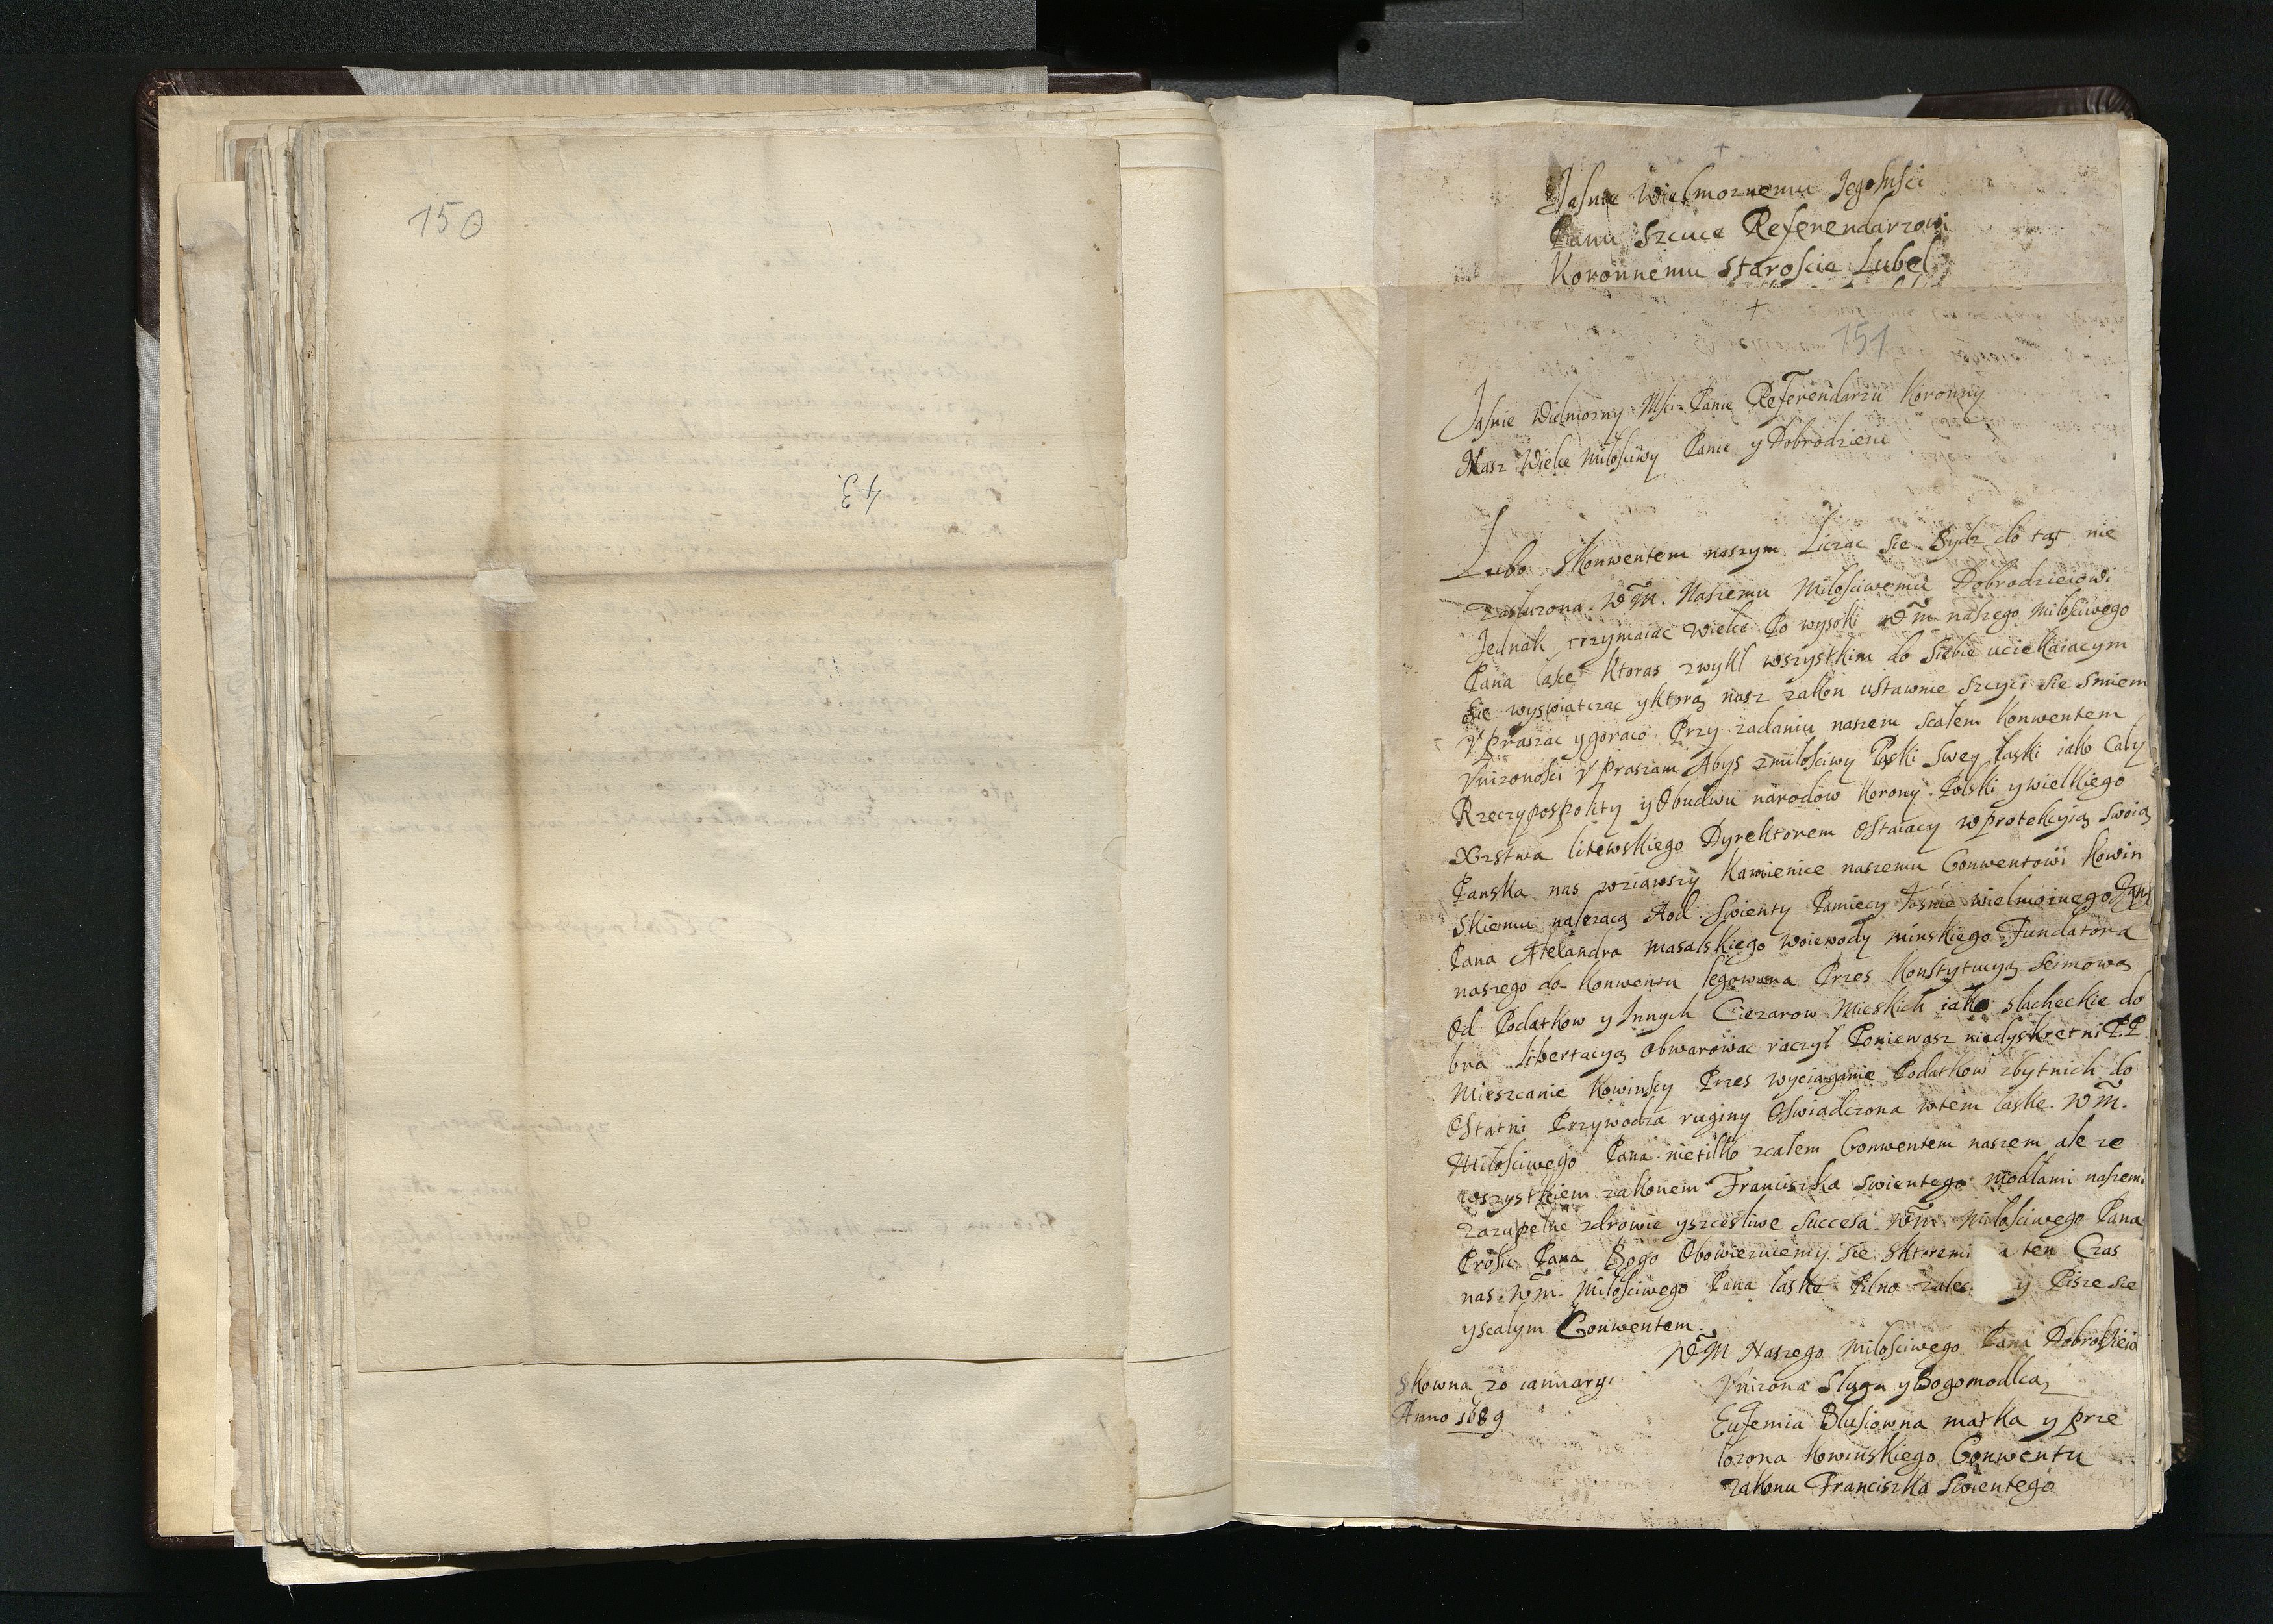 150
43.
+
Jasnie Wielmoznemu Jegomsci
Panu Szcuce Referendarzowi
Koronnemu staroscie Lubel
+
151
Jasnie Wielmozny Msci Panie Referendarzu Koronny
Nasz Wielce Miłosciwy Panie y Dobrodzieiu
Lubo Skonwentem naszym Liczac sie Bydz do tąt nie
zasłuzona. WM. Naszemu Miłosciwemu Dobrodzieiowi
Jednak trzymaiac Wielce Po wysoki WM naszego Miłosciwego
Pana łasce ktoras zwykł wszystkim do siebie uciekaiacym
sie wyswiatczac yktorą nasz zakon ustawnie szcyci sie smiem
Vpraszac ygoraco Przy zadaniu naszem scałem Konwentem
Vnizonosci Vpraszam Abys zmiłosciwy Pąski Swey łaski iako Cały
Rzeczypospolity y Obudwu narodow Korony Polski y wielkiego
Xzstwa litewskiego Dyrektorem Ostaiacy wprotekcyią Swoią
Panska nas wziąwszy Kamienice naszemu Conwentowi Kowin
skiemu nalezacą Aod Swienty Pamiecy Jasnie wielmoznego
Pana Alelandra masalskiego woiewody minskiego Fundatora
naszego do Konwentu legowana Przes Konstytucyą Seimową
Od Podatkow y Jnnych Ciezarow Mieskich iako slacheckie do
bra libertacyą Obwarowac raczył Poniewasz niedyskretni P.P
Mieszcanie Kowinscy Przes wyciaganie Podatkow zbytnich do
Ostatni Przywodza ruginy Oswiadczona wtem łaske. WM.
Miłosciwego Pana nietilko zcałem Conwentem naszem ale ze
wszystkiem zakonem Franciszka swientego modłami naszemi
zazupełne zdrowie yszcesliwe Succesa. WM. Miłosciwego Pana
Prosic Pana Bogo Obowiezuiemy sie sktoremi a ten Czas
nas WM. Miłosciwego Pana łaske Pilno zalec y Pisze sie
yscałym Conwentem.
WM Naszego Miłosciwego Pana Dobrodzieia
Skowna 20 ianuary
Anno 1689
Vnizona Sługa y Bogomodlcą
Eufemia Blusiowna matka y prze
łozona Kowinskiego Conwentu
zakonu Franciszka Swientego